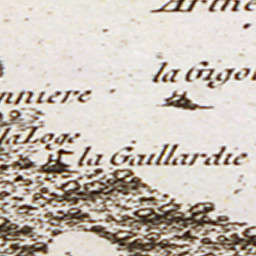 la Gigo
nniere
la Loge
la Gaillardie